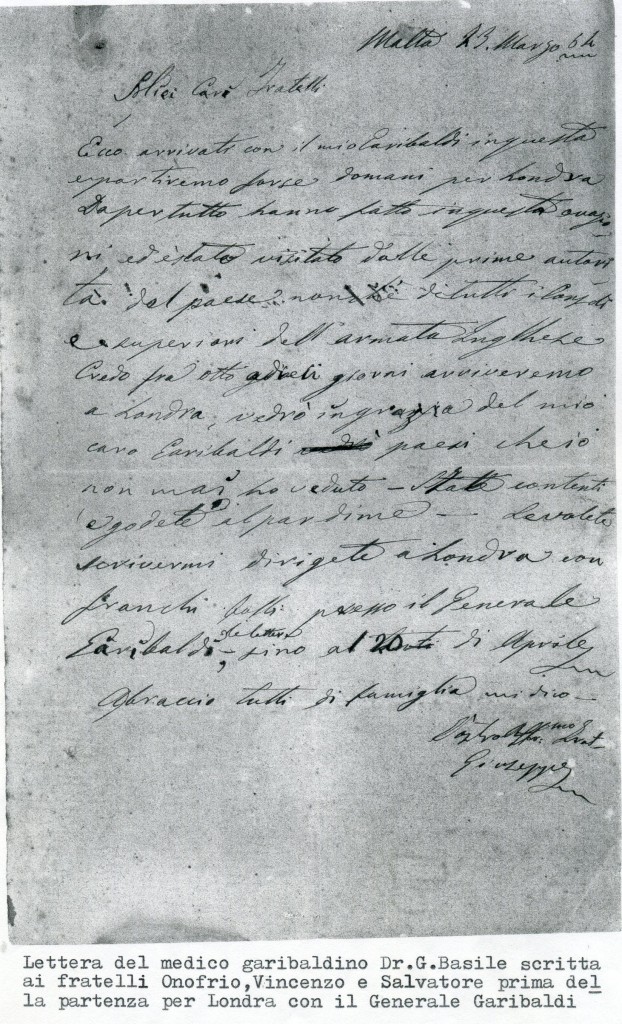 Malta 23. Marzo 64
Miei Cari Fratelli
Ecco arrivati con il mio Garibaldi in questa
e partiremo forse domani per Londra
Da per tutto hanno fatto in questa ovazio
ni ed è stato visitato dalle prime autori
tà del paese non di tutti i Consoli
e superiori dell'armata Inglhese
Credo fra otto giorni arriveremo
a Londra, vedrò in grazia del mio
caro Garibaldi paesi che io
non mai ho veduto – State contenti
e godete al par di me — Se volete
scrivermi dirigete a Londra con
franchi bolli presso il Generale
Garibaldi, le lettere sino al 20 di Aprile
Abbraccio tutti di famiglia
Vostro Aff.mo Frat.
Giuseppe
Lettera del medico garibaldino Dr.G.Basile scritta
ai fratelli Onofrio,Vincenzo e Salvatore prima del
la partenza per Londra con il Generale Garibaldi